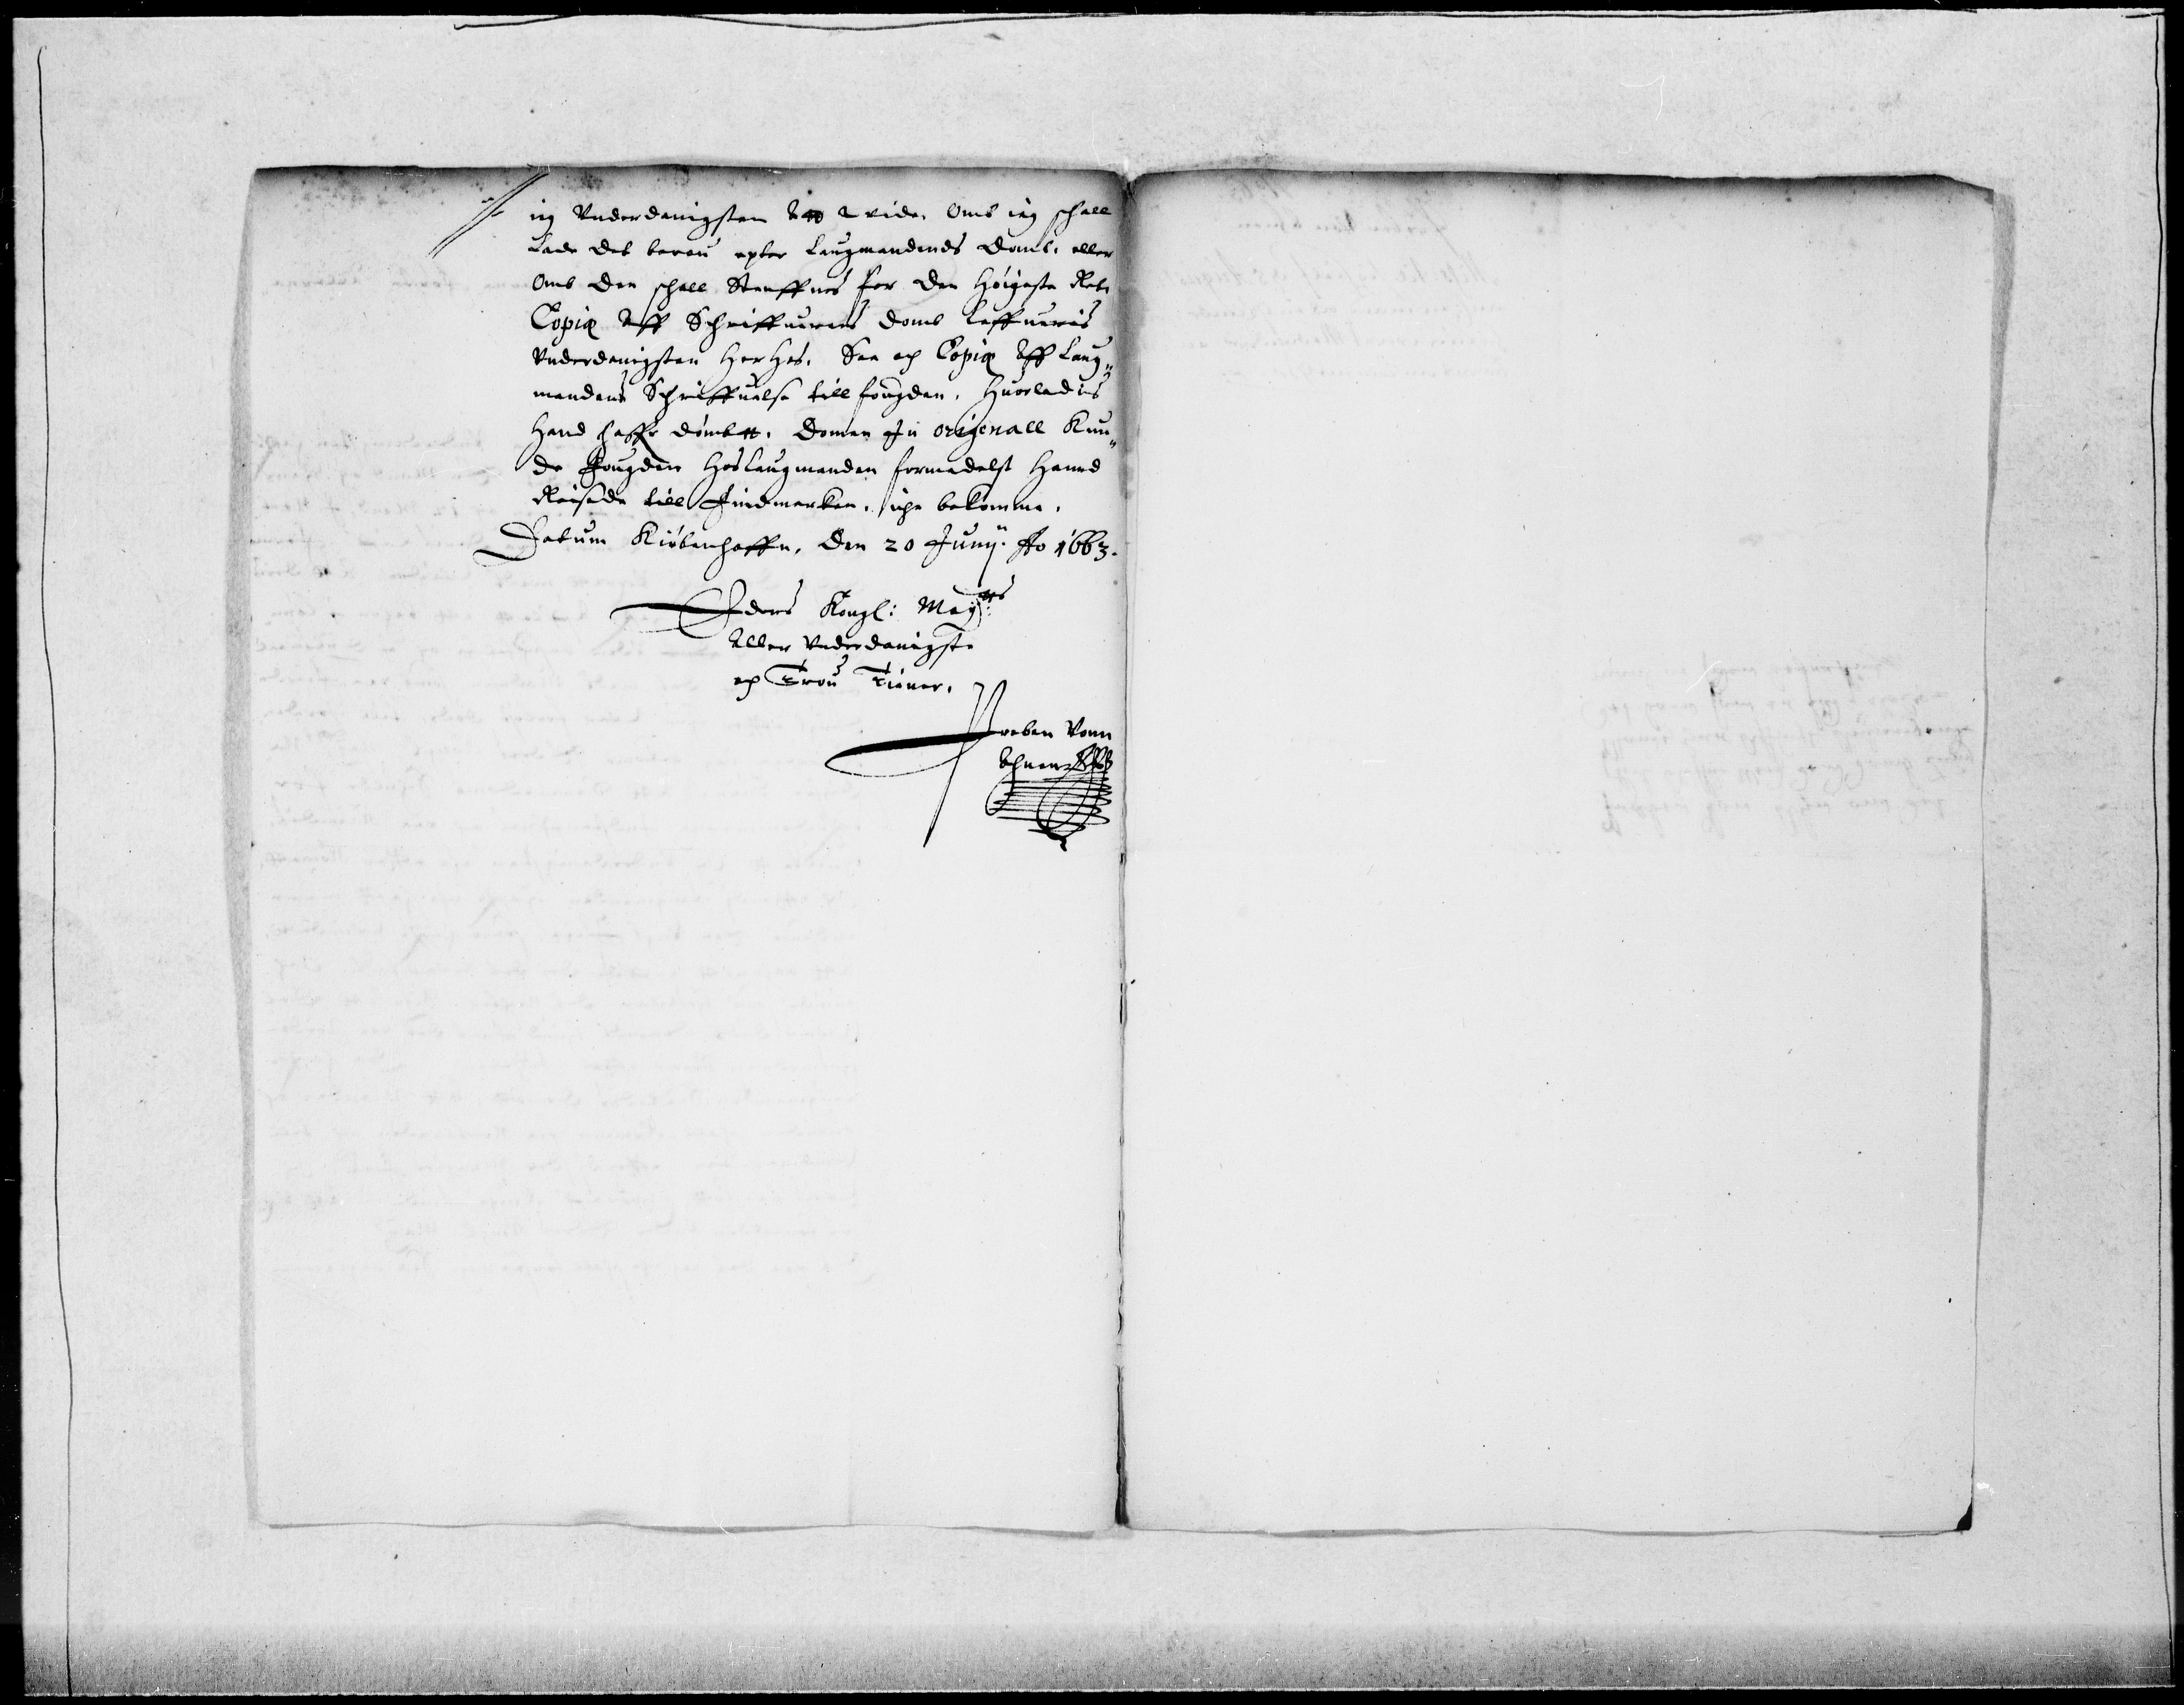 ieg Vnderdanigsten att vide, Omb ieg schall
lade det berou epter Laugmandends domb, eller
Omb den schall Steuffnes for den Høigeste Ret,
Copiæ aff Schriffuerens domb leffueris
Vnderdanigsten Her Hos, Saa och Copiæ aff Laug„
mandens Schriffuelse till fougden, Huorledis
Hand haffr dømbtt, domen In originall Kun„
de Fougden Hos Laugmanden formedelst Hannd
Reisede till Findmarken, iche bekomme,
Datum Kiøbenhaffn, den 20 Junij Ao 1663.
Eders Kongl: Maytts
Aller Vnderdanigste
och Trou Tiener,
Preben Vonn
Ahnen